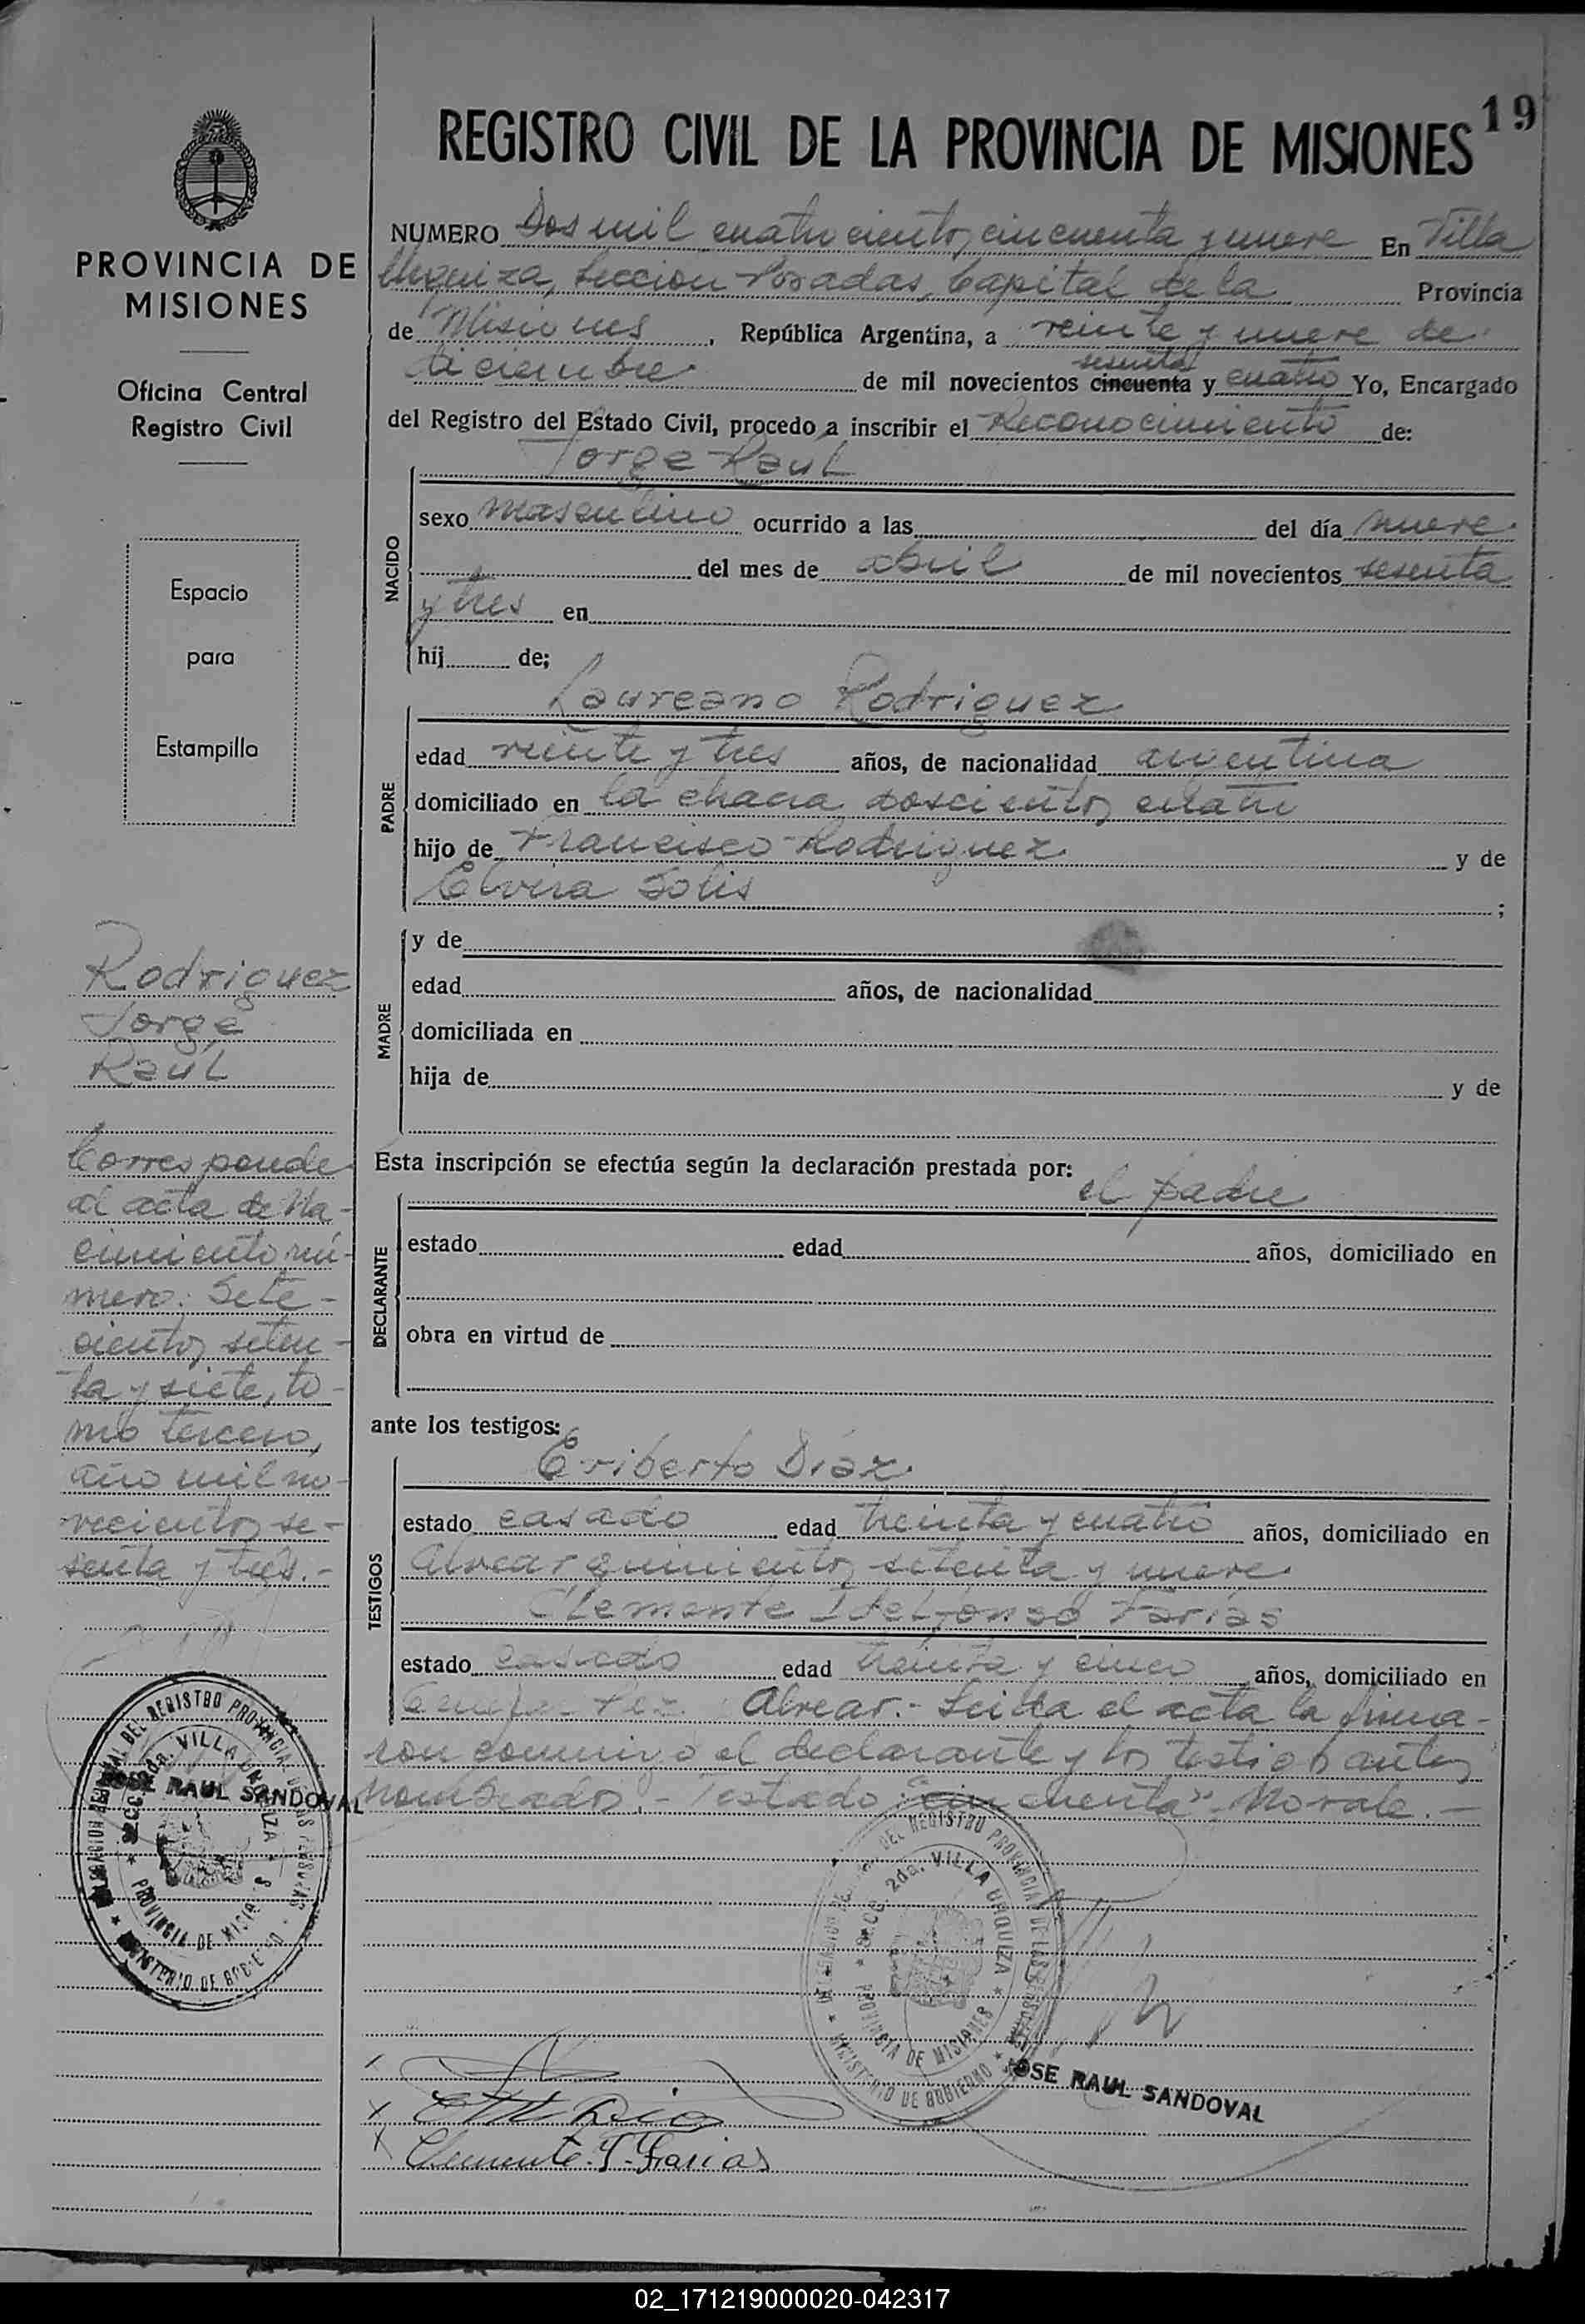 19
REGISTRO CIVIL DE LA PROVINCIA DE MISIONES
NUMERO Dos mil cuatrocientos cincuenta y nueve En Villa
Urquiza, Seccion Posadas, Capital de la Provincia
de Misiones, República Argentina, a veinte y nueve de
diciembre de mil novecientos cincuenta sesenta y cuatro Yo, Encargado
del Registro del Estado Civil, procedo a inscribir el Reconocimiento de:
Jorge Raúl
NACIDO
sexo masculino ocurrido a las del día nueve
del mes de abril de mil novecientos sesenta
y tres en
hij de;
Laureano Rodriguez
PADRE
edad veinte y tres años, de nacionalidad argentina
domiciliado en la chacra doscientos cuatro
hijo de Francisco Rodriguez y de
Elvira Solis ;
MADRE
y de
edad años, de nacionalidad
domiciliada en
hija de y de
Esta inscripción se efectúa según la declaración prestada por:
el padre
DECLARANTE
estado edad años, domiciliado en
obra en virtud de
ante los testigos:
Eriberto Diaz
TESTIGOS
estado casado edad treinta y cuatro años, domiciliado en
Alvear quinientos setenta y nueve
Clemente Idelfonso Farias
estado casado edad treinta y cinco años, domiciliado en
Alvear.- Leida el acta la firma-
ron conmigo el declarante y los testigos antes
nombrados.- Testado: "cincuenta". No vale.-
DELEGACION DEL REGISTRO PROVINCIAL DE LAS PERSONAS
SECC. 2da. VILLA URQUIZA
PROVINCIA DE MISIONES
MINISTERIO DE GOBIERNO
JOSE RAUL SANDOVAL
Clemente I. Farias
PROVINCIA DE
MISIONES
Oficina Central
Registro Civil
Espacio
para
Estampilla
Rodriguez
Jorge
Raúl
Corresponde
al acta de Na-
cimiento nú-
mero: Sete-
cientos seten-
ta y siete, to-
mo tercero,
año mil no-
vecientos se-
senta y tres.-
DEL REGISTRO PROVINCIAL DE LAS PERSONAS
SECC. 2da. VILLA URQUIZA
PROVINCIA DE MISIONES
MINISTERIO DE GOBIERNO
JOSE RAUL SANDOVAL
02_171219000020-042317